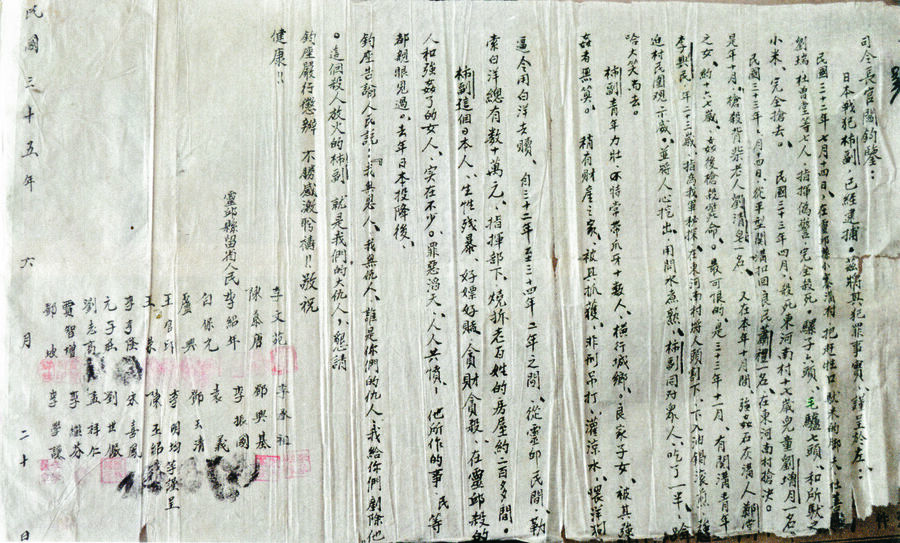 司令長官閻鈞鑒：
日本戰犯柿副，已經逮捕。茲將其犯罪事實，謹呈於左：
民國三十三年七月十四日，在靈邱縣小寨溝村，把趕牲口馱米的鄧大、仕
劉瑞、杜曹堂等七人，指揮偽警，完全殺死。騾子六頭、毛驢七頭、和所馱之
小米，完全搶去。民國三十三年四月，殺死東河南村十七歲兒童劉增月一名。
民國三十三年，月四日，從平型關溝扣回良民蕭禮一名，在東河南村槍決。
是年十月，槍殺背柴老人劉清皂一名。又在本年十月間，強姦石灰溝人鄭
之女、約十六七歲、姦後槍殺斃命。最可恨的是三十三年十一月，有關溝青年
李興民，年二十二歲，指為我軍秘探，在東河南村將人頭割下，下入油鍋滾煎，強
迫村民圍觀示威。並將人心挖出，用開水煮熟，柿副同對衆人，吃了一半，
哈大笑而去。
柿副青年力壯，平時常帶爪牙十數人，橫行城鄉。良家子女，被其強
姦者無算。稍有財產之家，被其抓獲，非刑吊打，灌涼水，喂洋狗
逼令用白洋去贖，自三十二年至三十四年二年之間，從靈邱民間，勒
索白洋總有數十萬元，指揮部下，燒拆老百姓的房屋約二百多間。
柿副這個日本人，生性殘暴，好嫖好賭，貪財貪殺，在靈邱殺的
人和強姦了的女人，實在不少。罪惡滔天，人人共憤，他所作的事，民等
都親眼見過。去年日本投降後，
鈞座告諭人民說：我與恩人，我無仇人，誰是你們的仇人，我給你們剷除他
。這個殺人放火的柿副，就是我們的大仇人，懇請
鈞座嚴行懲辦，不勝感激盼禱！！敬祝
健康！！
靈邱縣留省人民
李文苑 李承祖
陳慕唐 鄧興基
李紹年 李振國
白保元 袁義
盧興 鄧玉清
王官印 李明均等謹呈
王泰 陳玉昭
李子俊 宋喜鳳
元子 劉世
劉志高 孟祥仁
賈智增 李繼芬
郭 李學謙
民國三十五年六月二十日